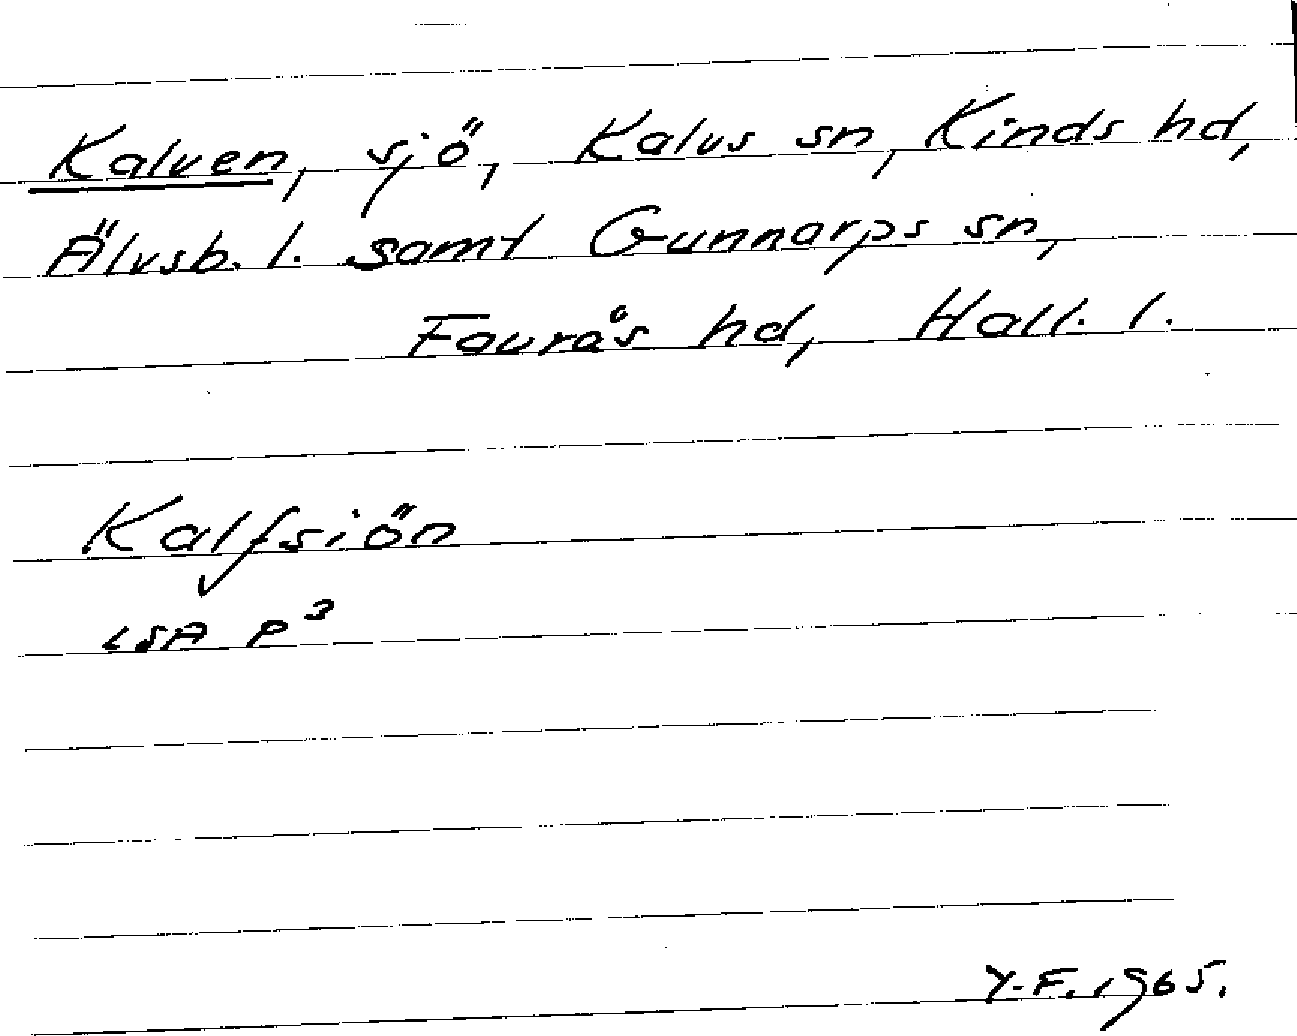 Kalven, sjö, Kalvs sn, Kinds hd,
Älvsb. l. samt Gunnarps sn,
Faurås hd, Hall. l.
Kalfsiön
LSA P³
Y-F. 1965.